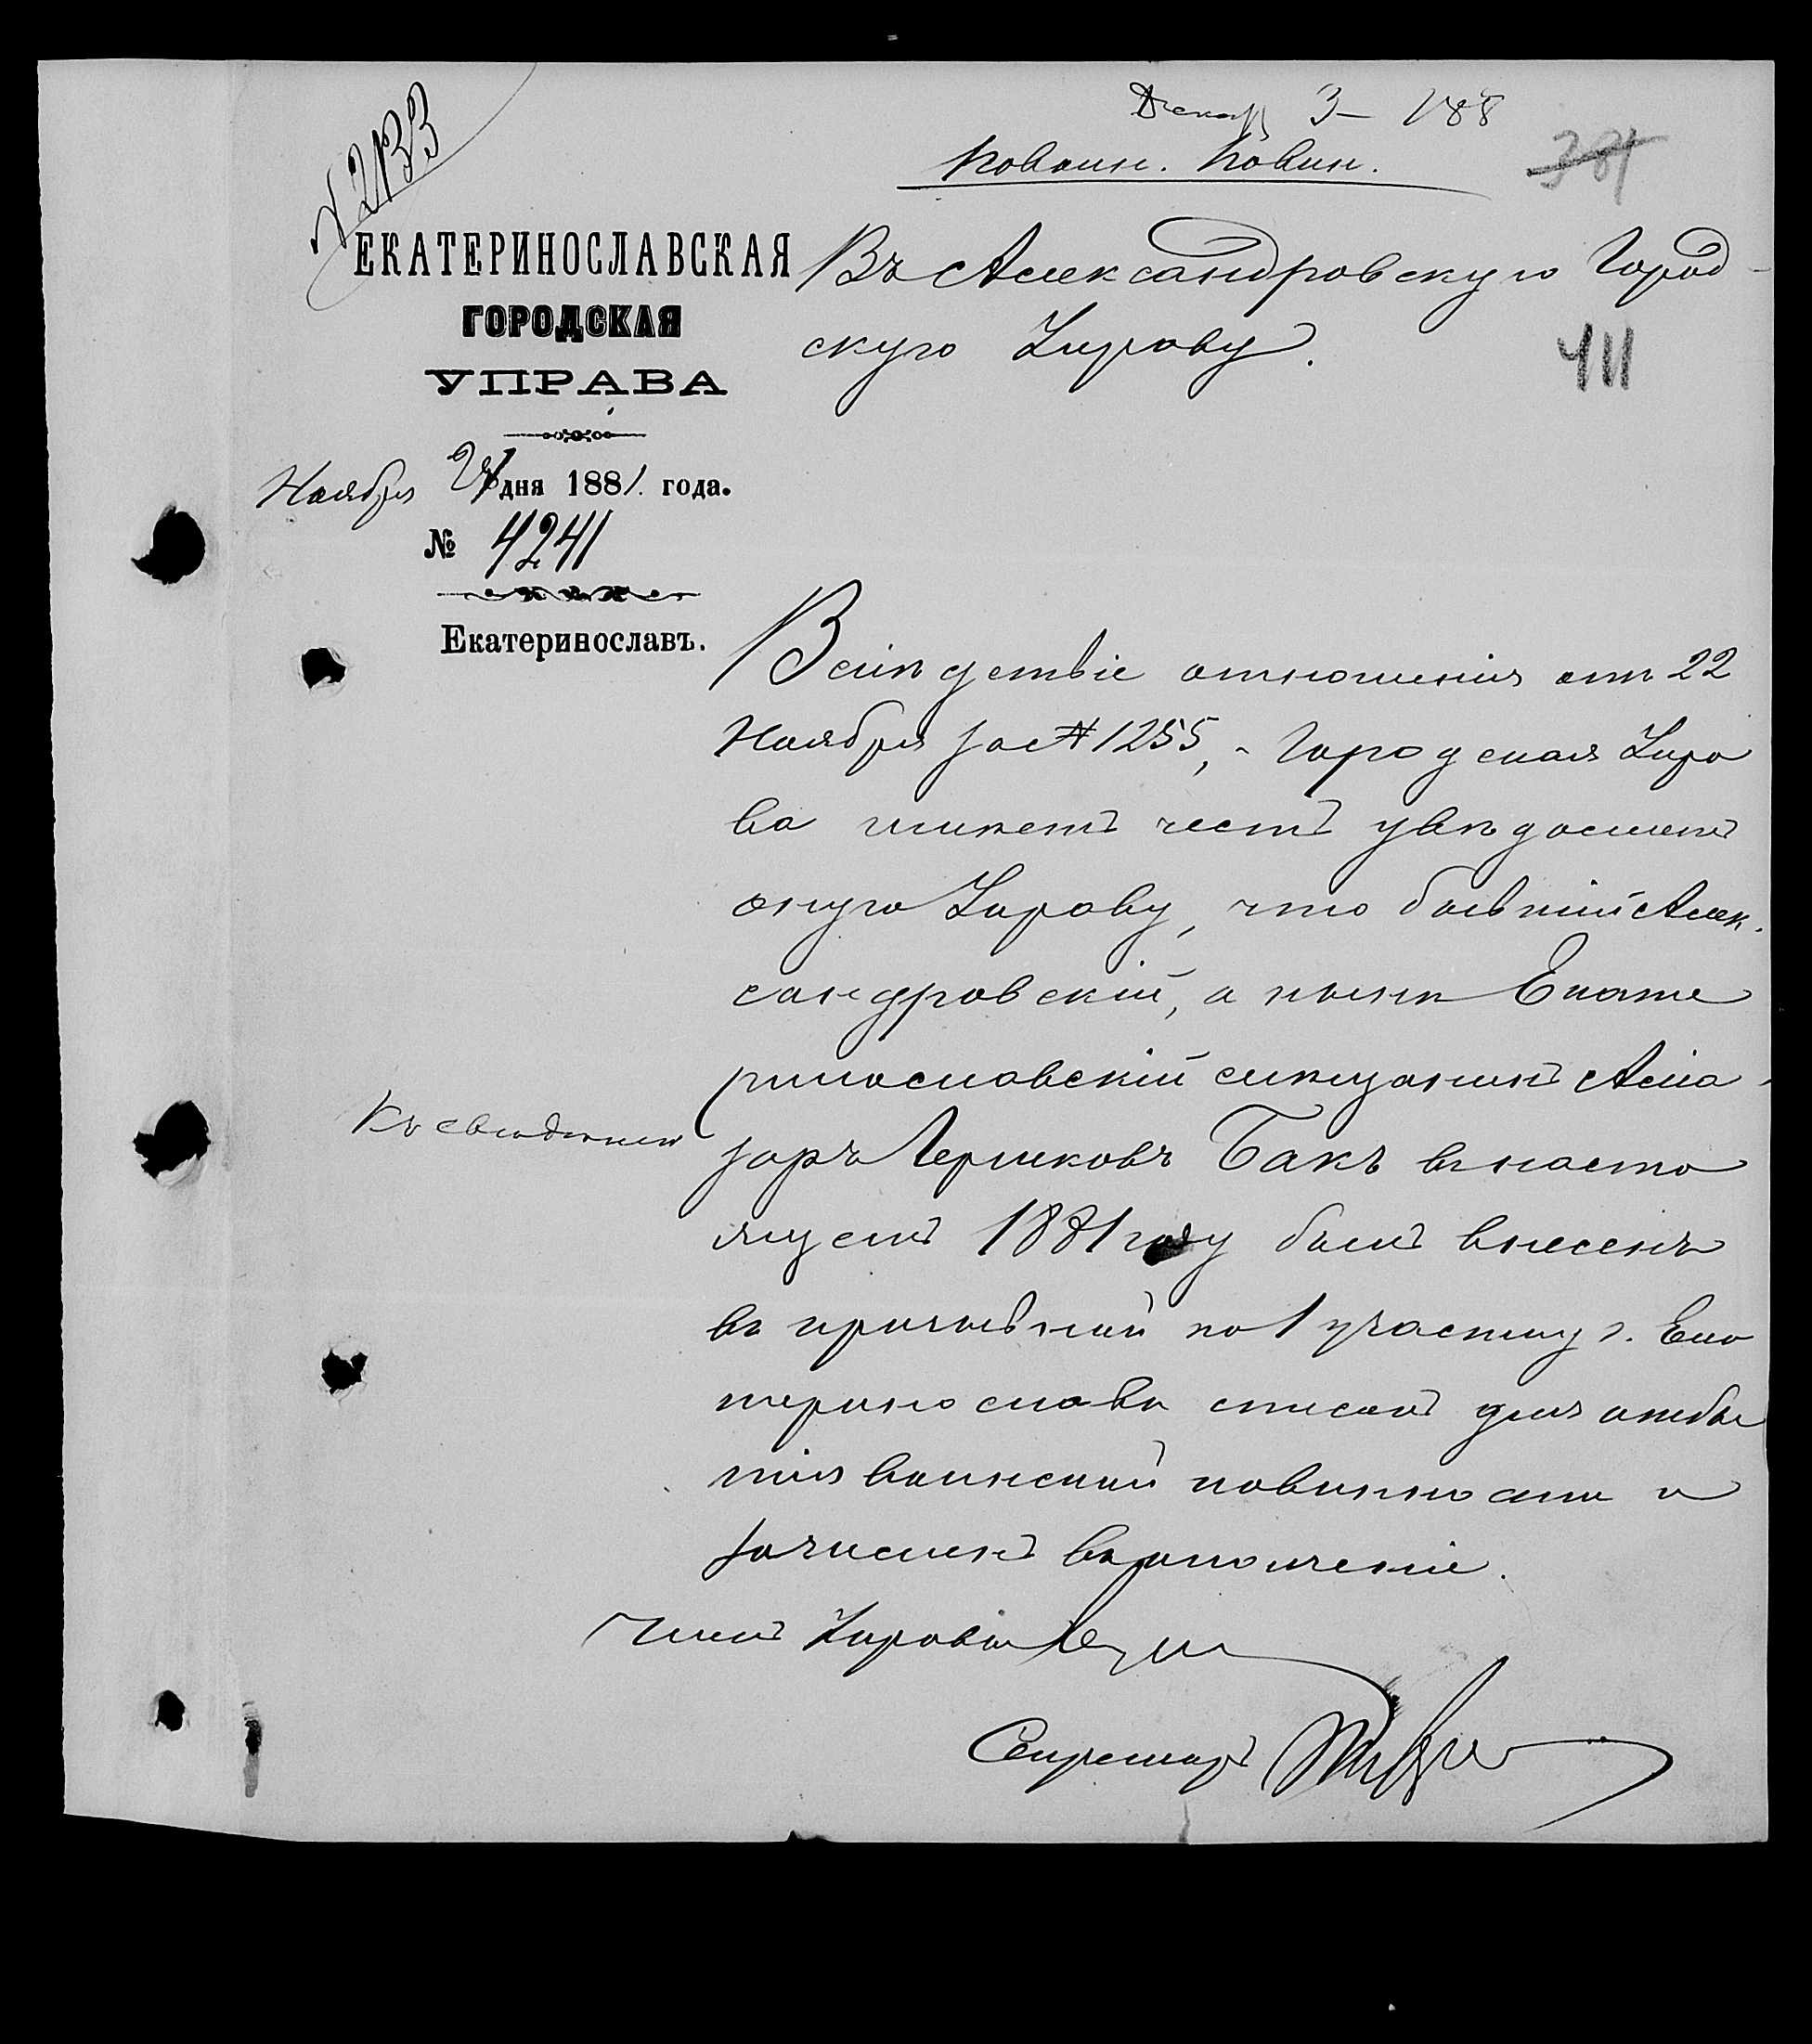 Декабр 3 188
По воин. повин.
№ 2133
381
ЕКАТЕРИНОСЛАВСКАЯ
ГОРОДСКАЯ
УПРАВА
Ноября дня 1881. года.
№ 4241
Екатеринославъ.
Въ Александровскую Город-
скую Управу.
411
Вслѣдствіе отношенія отъ 22
Ноября за № 1255, - Городская Упра
ва имѣетъ честь увѣдомить
оную Управу, что бывшій Алек-
сандровскій, а нынѣ Екате
ринославскій мѣщанинъ
Къ свѣдѣнію
Берковъ Бакъ въ насто
ящемъ 1881 году былъ внесенъ
въ призывной по 1 участку г. Ека
теринослава списокъ для отбы
тія воинской повинности и
зачисленъ въ ополченіе.
Членъ Управы
Секретарь